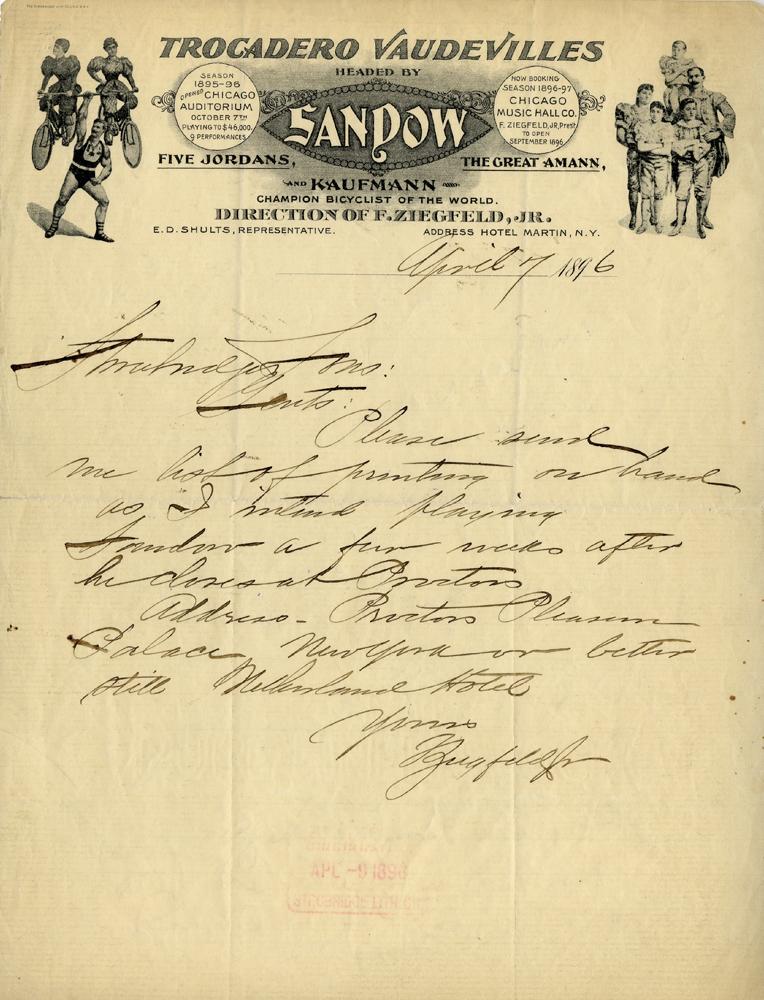 TROCADERO VAUDEVILLES
HEADED BY
SANDOW
SEASON
1895-96
OPENED CHICAGO
AUDITORIUM
OCTOBER 7TH
PLAYING TO $46,000.
9 PERFORMANCES
NOW BOOKING
SEASON 1896-97
CHICAGO
MUSIC HALL CO.
F. ZIEGFELD, JR, Prest
TO OPEN
SEPTEMBER 1896
FIVE JORDANS,
THE GREAT AMANN,
AND KAUFMANN
CHAMPION BICYCLIST OF THE WORLD.
DIRECTION OF F. ZIEGFELD, JR.
E. D. SHULTS, REPRESENTATIVE.
ADDRESS HOTEL MARTIN, N.Y.
April 7 1896
Strobridge Sons:
Gents:
Please send
me list of printing on hand
as I intend playing
Sandow a few weeks after
he closes at Proctors
Address - Proctors Pleasure
Palace, New York or better
still Netherland Hotel
Yours
Ziegfeld Jr
APL -9 1896
STROBRIDGE LITH. CO.